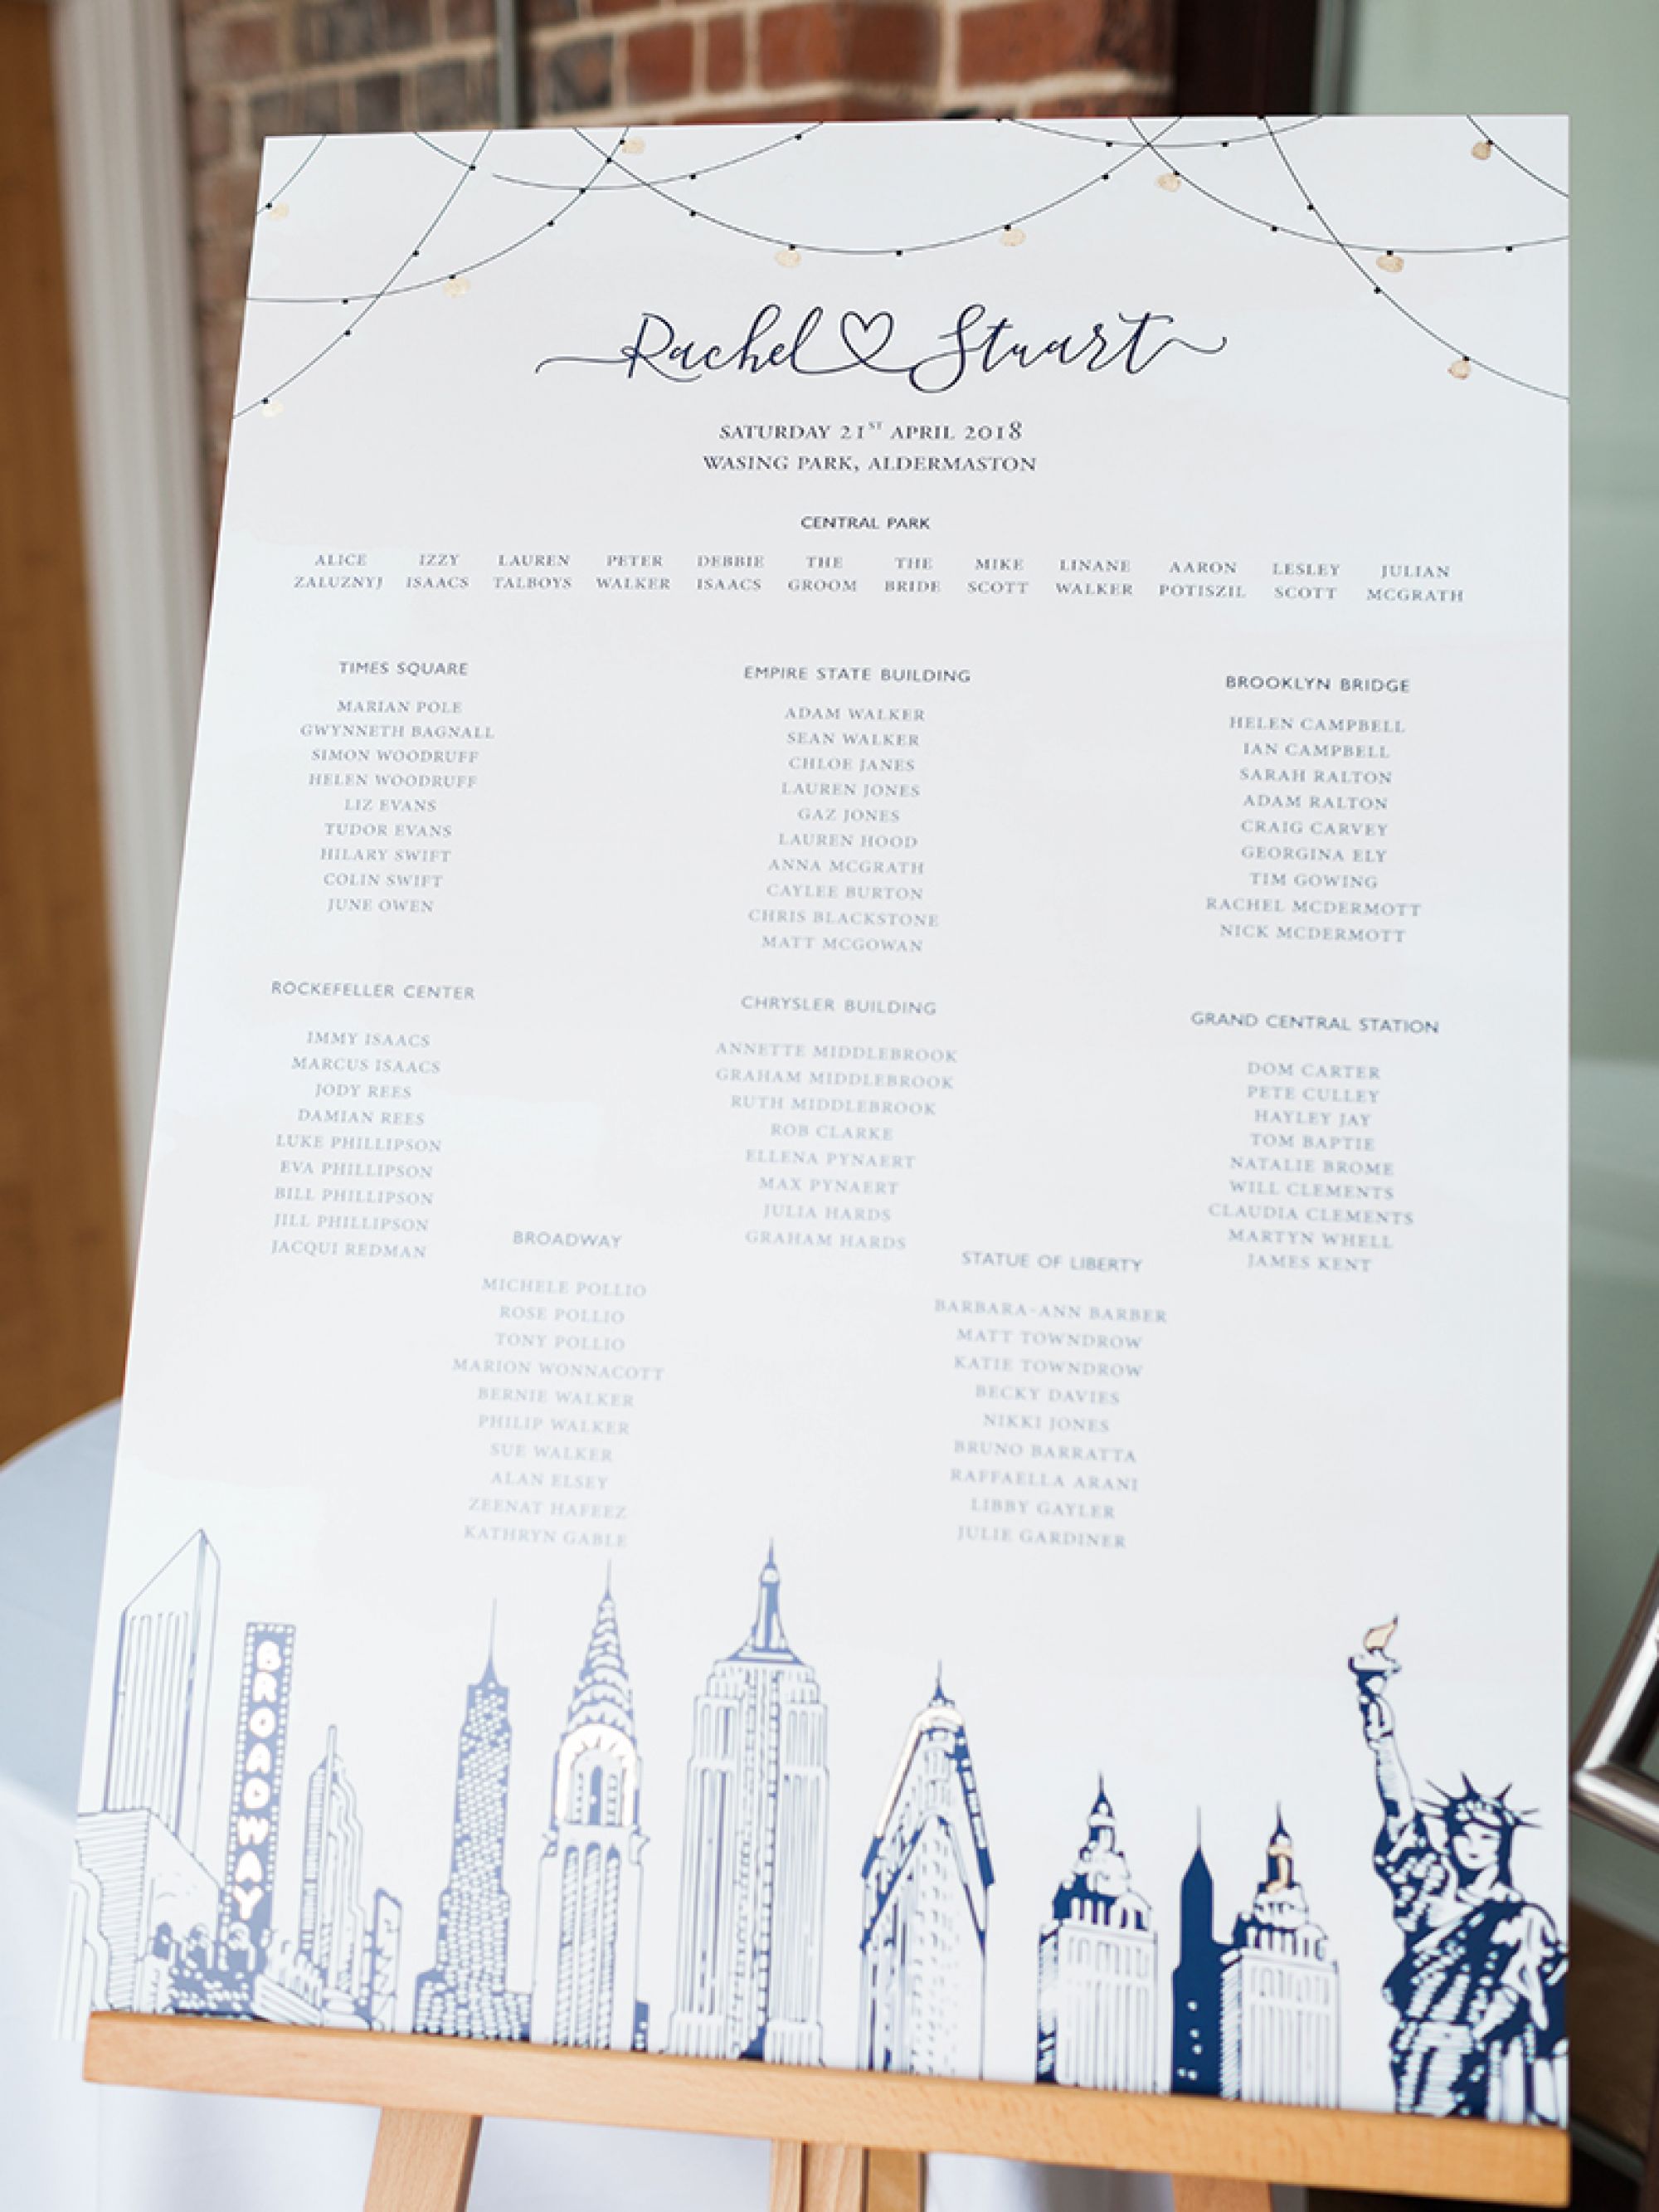 Rachel Stuart
SATURDAY 21ST APRIL 2018
WASING PARK, ALDERMASTON
CENTRAL PARK
ALICE IZZY LAUREN PETER DEBBIE THE THE MIKE LINANE AARON LESLEY JULIAN
ZALUZNYJ ISAACS TALBOYS WALKER ISAACS GROOM BRIDE SCOTT WALKER POTISZIL SCOTT MCGRATH
TIMES SQUARE
MARIAN POLE
GWYNNETH BAGNALL
SIMON WOODRUFF
HELEN WOODRUFF
LIZ EVANS
TUDOR EVANS
HILARY SWIFT
COLIN SWIFT
JUNE OWEN
EMPIRE STATE BUILDING
ADAM WALKER
SEAN WALKER
CHLOE JANES
LAUREN JONES
GAZ JONES
LAUREN HOOD
ANNA MCGRATH
CAYLEE BURTON
CHRIS BLACKSTONE
MATT MCGOWAN
BROOKLYN BRIDGE
HELEN CAMPBELL
IAN CAMPBELL
SARAH RALTON
ADAM RALTON
CRAIG CARVEY
GEORGINA ELY
TIM GOWING
RACHEL MCDERMOTT
NICK MCDERMOTT
ROCKEFELLER CENTER
IMMY ISAACS
MARCUS ISAACS
JODY REES
DAMIAN REES
LUKE PHILLIPSON
EVA PHILLIPSON
BILL PHILLIPSON
JILL PHILLIPSON
JACQUI REDMAN
CHRYSLER BUILDING
ANNETTE MIDDLEBROOK
GRAHAM MIDDLEBROOK
RUTH MIDDLEBROOK
ROB CLARKE
ELLENA PYNAERT
MAX PYNAERT
JULIA HARDS
GRAHAM HARDS
GRAND CENTRAL STATION
DOM CARTER
PETE CULLEY
HAYLEY JAY
TOM BAPTIE
NATALIE BROME
WILL CLEMENTS
CLAUDIA CLEMENTS
MARTYN WHELL
JAMES KENT
BROADWAY
MICHELE POLLIO
ROSE POLLIO
TONY POLLIO
MARION WONNACOTT
BERNIE WALKER
PHILIP WALKER
SUE WALKER
ALAN ELSEY
ZEENAT HAFEEZ
KATHRYN GABLE
STATUE OF LIBERTY
BARBARA-ANN BARBER
MATT TOWNDROW
KATIE TOWNDROW
BECKY DAVIES
NIKKI JONES
BRUNO BARRATTA
RAFFAELLA ARANI
LIBBY GAYLER
JULIE GARDINER
BROADWAY